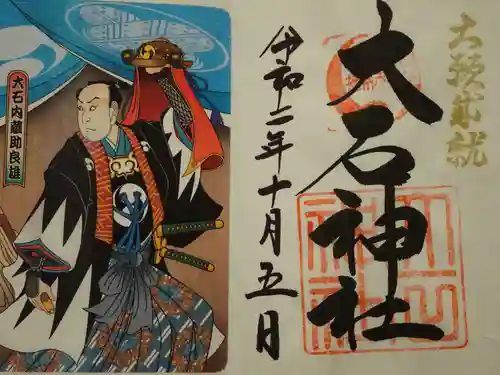 大願成就
大石神社
令和二年十月五日
大石内蔵助良雄